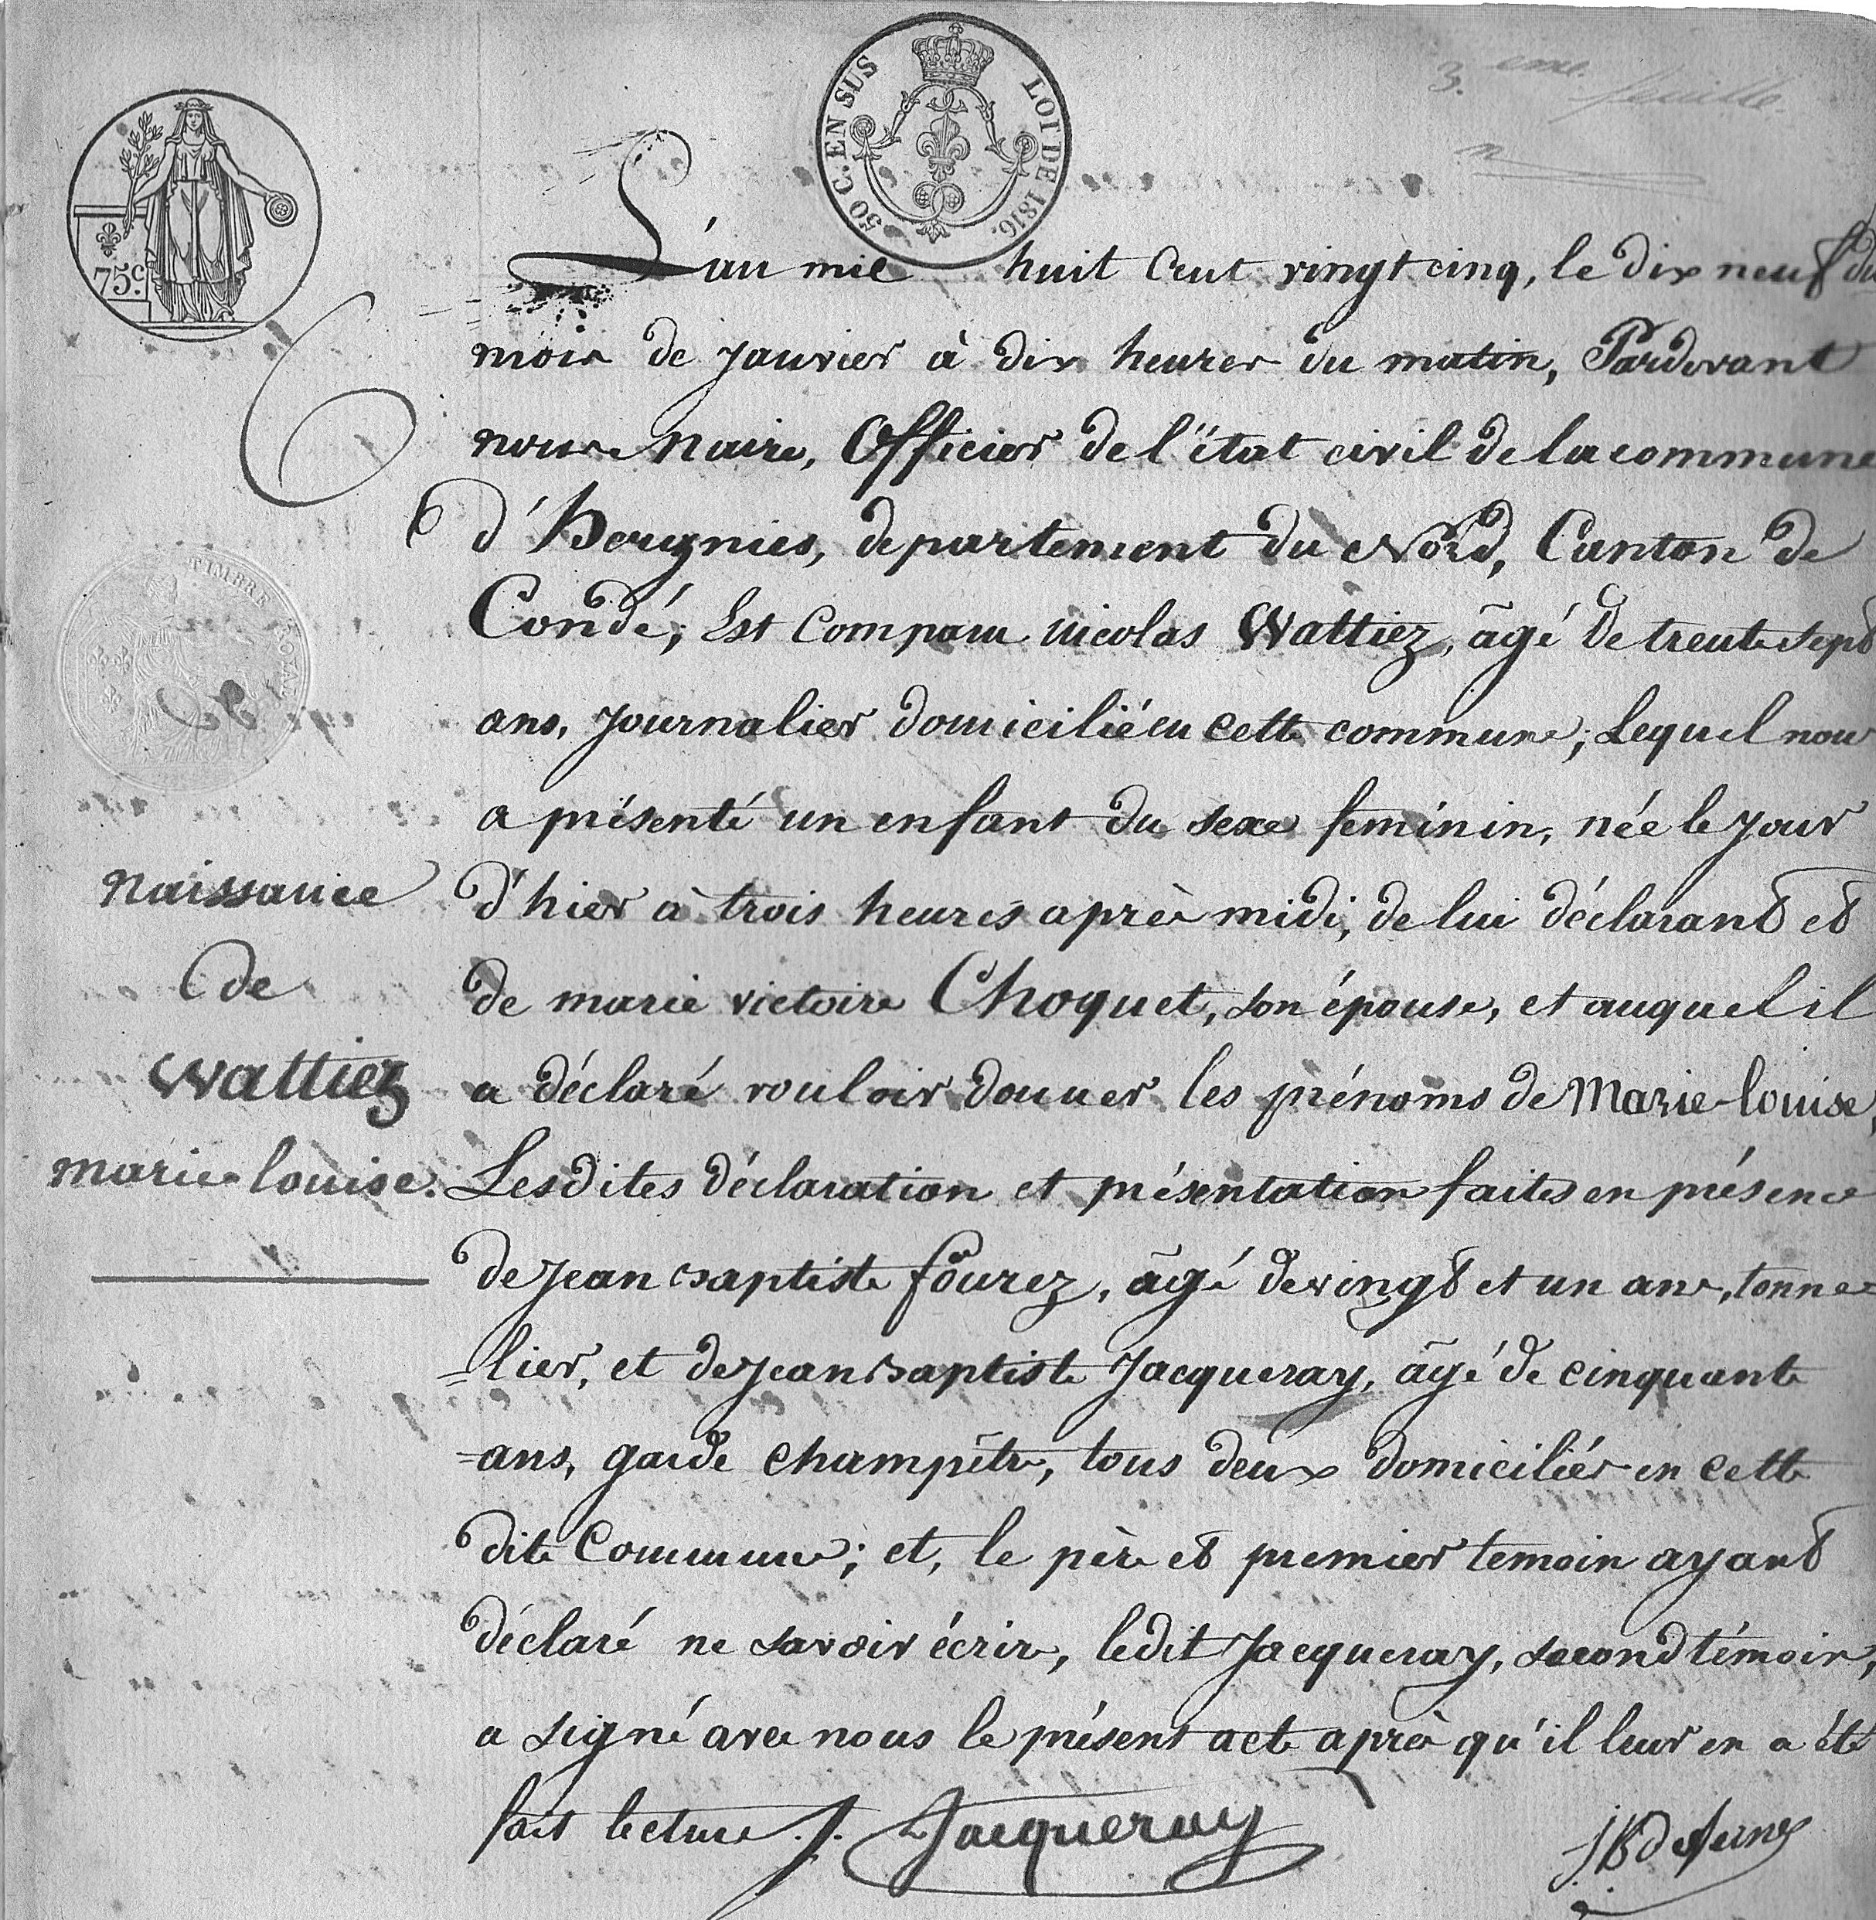 3.eme feuille
50 C. EN SUS
LOI DE 1816.
75c.
L'an mil huit cent vingt cinq, le dix neuf du
mois de janvier à dix heures du matin, Pardevant
nous Maire, Officier de l'état civil de la commune
d'Hergnies, departement du Nord, Canton de
Condé, Est comparu nicolas Wattiez, âgé de trente sept
ans, journalier domicilié en cette commune; Lequel nous
a présenté un enfant du sexe feminin, née le jour
d'hier à trois heures après midi, de lui déclarant et
de marie victoire Choquet, son épouse, et auquel il
a déclaré vouloir donner les prénoms de Marie-louise,
Lesdites déclaration et présentation faites en présence
de jean baptiste fourez, âgé de vingt et un ans, tonne
=lier, et de jean baptiste Jacqueray, âgé de cinquante
=ans, garde champêtre, tous deux domiciliés en cette
dite commune; et, le père et premier temoin ayant
déclaré ne savoir écrire, ledit Jacqueray, second témoin,
a signé avec nous le présent acte après qu'il leur en a été
fait lecture ./.
Jacqueray
TIMBRE ROYAL
naissance
de
Wattiez
marie louise.